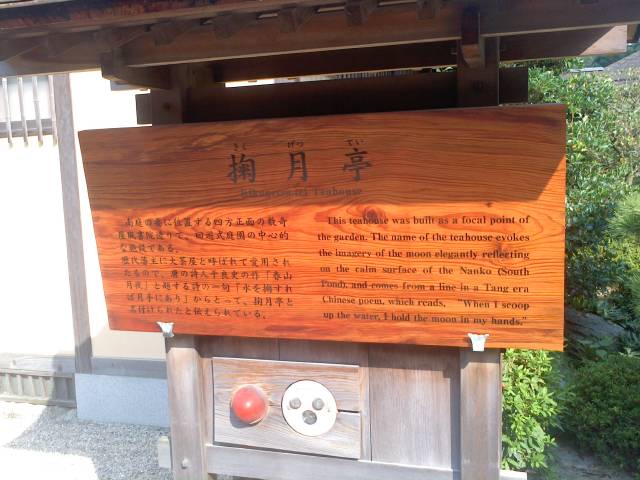 きく げつ てい
掬月亭
Kikugetsu-tei Teahouse
南庭の要に位置する四方正面の数寄
屋風書院造りで、回遊式庭園の中心的
な施設である。
歴代藩主に大茶屋と呼ばれて愛用され
たもので、唐の詩人于良史の作「春山
月夜」と題する詩の一句「水を掬すれ
ば月手にあり」からとって、掬月亭と
名付けられたと伝えられている。
This teahouse was built as a focal point of
the garden. The name of the teahouse evokes
the imagery of the moon elegantly reflecting
on the calm surface of the Nanko (South
Pond), and comes from a line in a Tang era
Chinese poem, which reads, "When I scoop
up the water, I hold the moon in my hands."